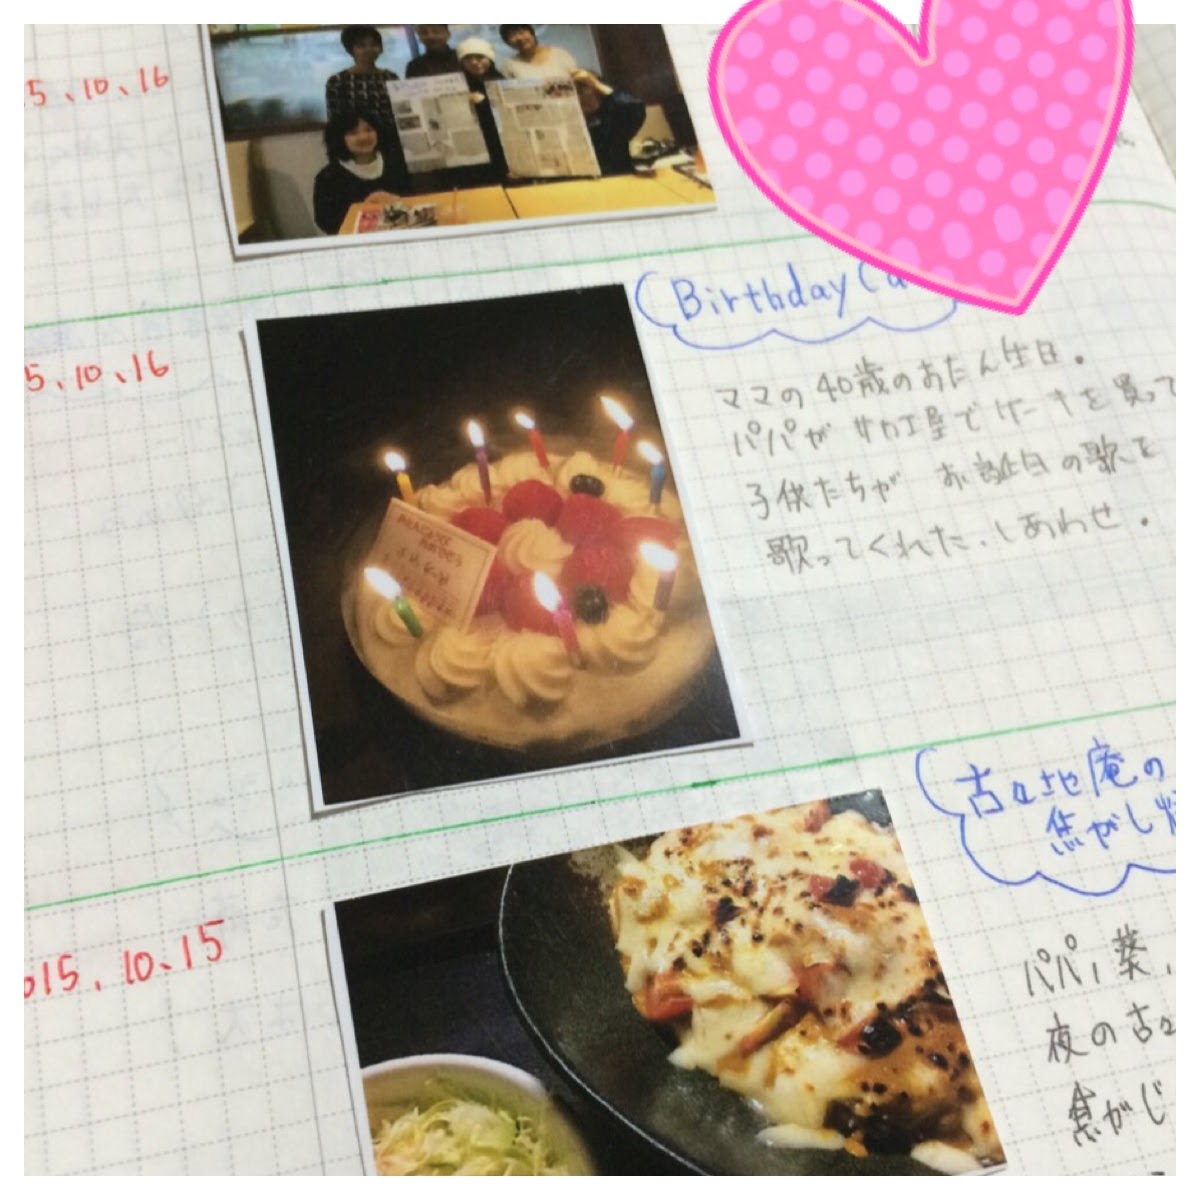 5、10、16
Birthday Ca
5、10、16
ママの40歳のおたん生日。
パパが サカエ屋でケーキを買って
子供たちが お誕生日の歌を
歌ってくれた。しあわせ。
古々地庵の
焦がし
015、10、15
パパ、葵、
夜の古々
焦がし